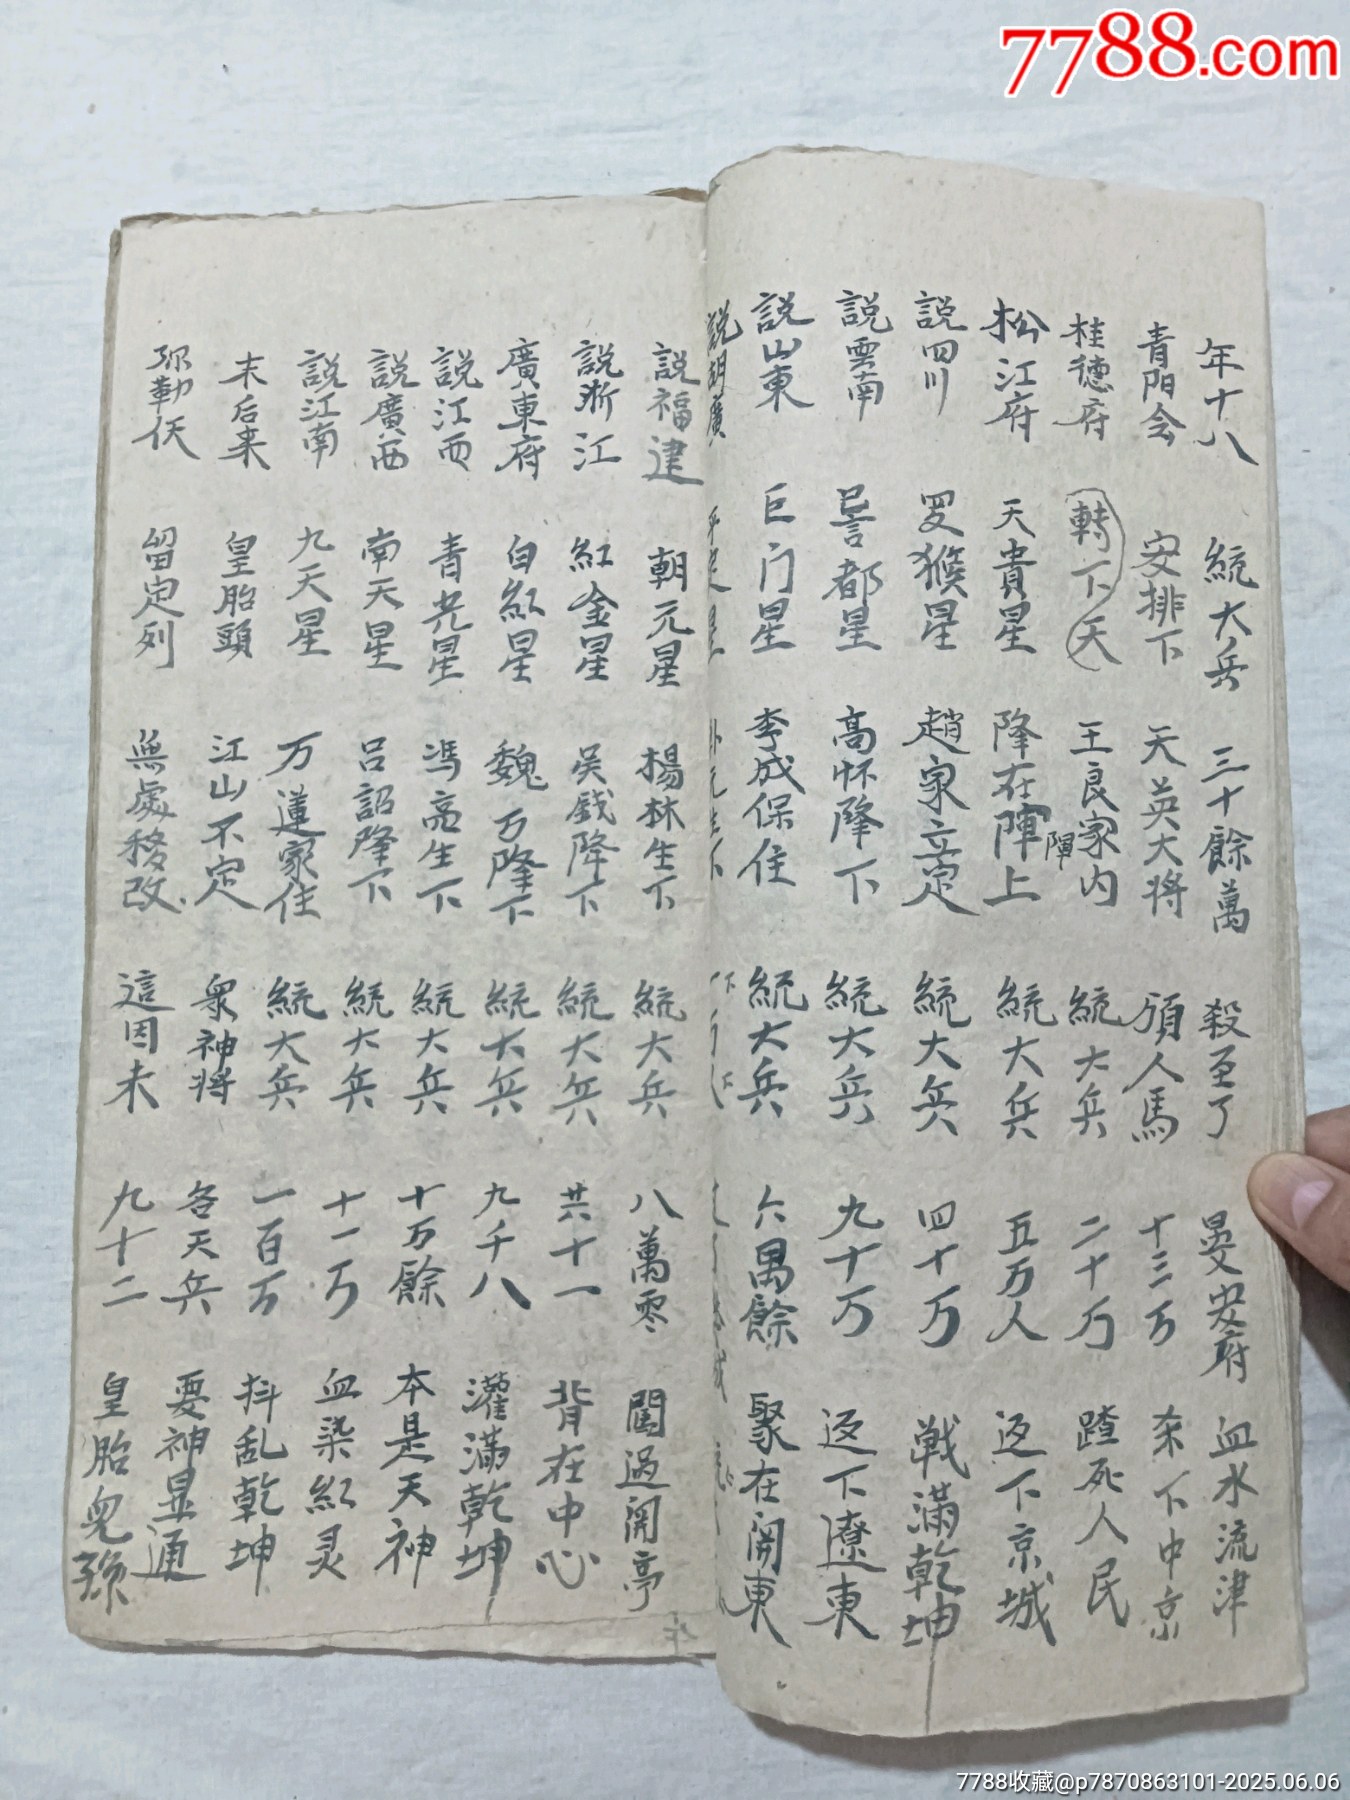 7788.com
年十八 統大兵 三十餘萬 殺至了 曼安府 血水流津
青阳会 安排下 天英大将 領人馬 十三万 来下中京
桂德府 轉下天 王良家内 統大兵 二十万 蹅死人民
松江府 天貴星 降在陣上 統大兵 五万人 返下京城
陣
説四川 猴星 趙家立定 統大兵 四十万 戦滿乾坤
説雲南 都星 高怀降下 統大兵 九十万 返下遼東
説山東 巨门星 李成保住 統大兵 六萬餘 聚在関東
説胡廣
説福建 朝元星 楊林生下 統大兵 八萬零 闖過関亭
説浙江 紅金星 吴戲降下 統大兵 共十一 背在中心
廣東府 白紅星 魏万降下 統大兵 九千八 灌滿乾坤
説江西 青光星 馮高生下 統大兵 十万餘 本是天神
説廣西 南天星 吕詔降下 統大兵 十一万 血染紅灵
説江南 九天星 万蓮家住 統大兵 一百万 抖乱乾坤
末后来 皇胎頭 江山不定 衆神将 各天兵 要神显通
弥勒仸 留定列 無處移改 這因未 九十二 皇胎兒孫
7788收藏@p7870863101-2025.06.06